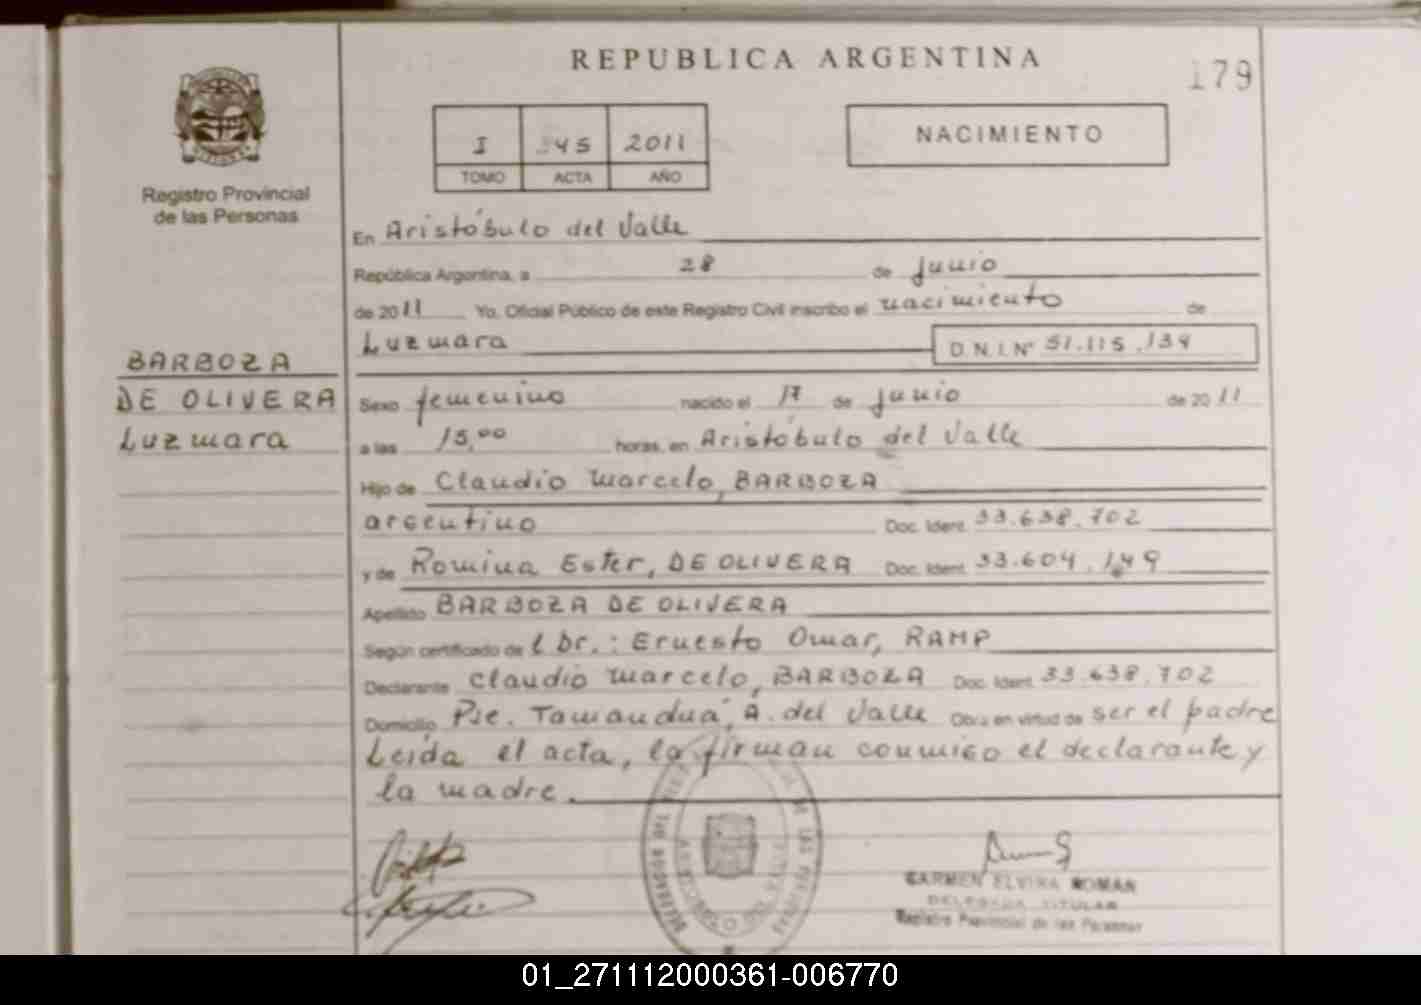 REPUBLICA ARGENTINA
179
NACIMIENTO
I 345 2011
TOMO ACTA AÑO
Registro Provincial
de las Personas
BARBOZA
DE OLIVERA
Luzmara
En Aristóbulo del Valle
República Argentina, a 28 de junio
de 2011 Yo, Oficial Público de este Registro Civil inscribo el nacimiento de
Luzmara D.N.I.Nº 51.115.134
Sexo femenino nacido el 17 de junio de 2011
a las 15,00 horas, en Aristóbulo del Valle
Hijo de Claudio Marcelo, BARBOZA
argentino Doc. Ident. 33.638.702
y de Romina Ester, DE OLIVERA Doc. Ident. 33.604.149
Apellido BARBOZA DE OLIVERA
Según certificado de l Dr.: Ernesto Omar, RAMP
Declarante Claudio Marcelo, BARBOZA Doc. Ident. 33.638.702
Domicilio Pje. Tamanduá, A. del Valle Obra en virtud de ser el padre
Leída el acta, la firman conmigo el declarante y
la madre.
CARMEN ELVIRA ROMAN
DELEGADA TITULAR
Registro Provincial de las Personas
01_271112000361-006770